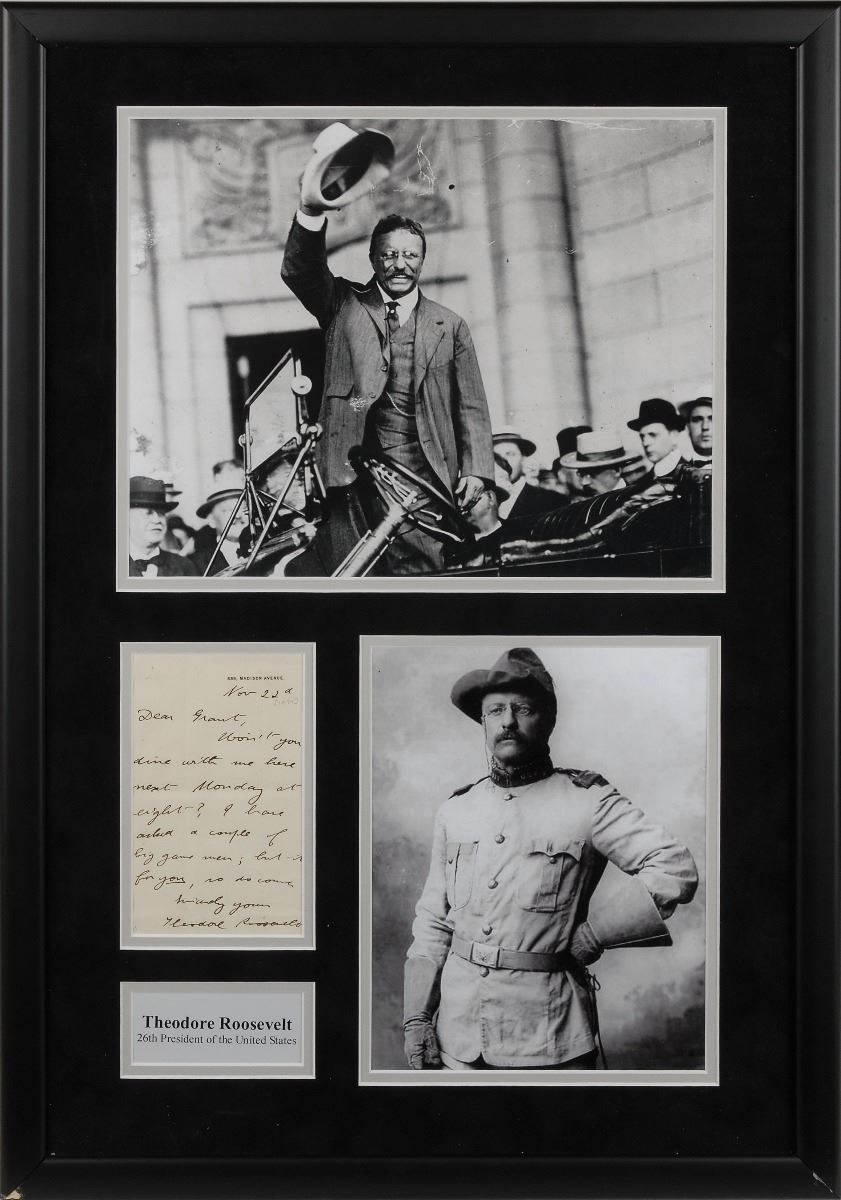 689, MADISON AVENUE.
Nov 22d
Dear Grant,
Won't you
dine with me here
next Monday at
eight? I have
asked a couple of
big game men; but it
for you, so do come
Sincerely yours
Theodore Roosevelt
Theodore Roosevelt
26th President of the United States